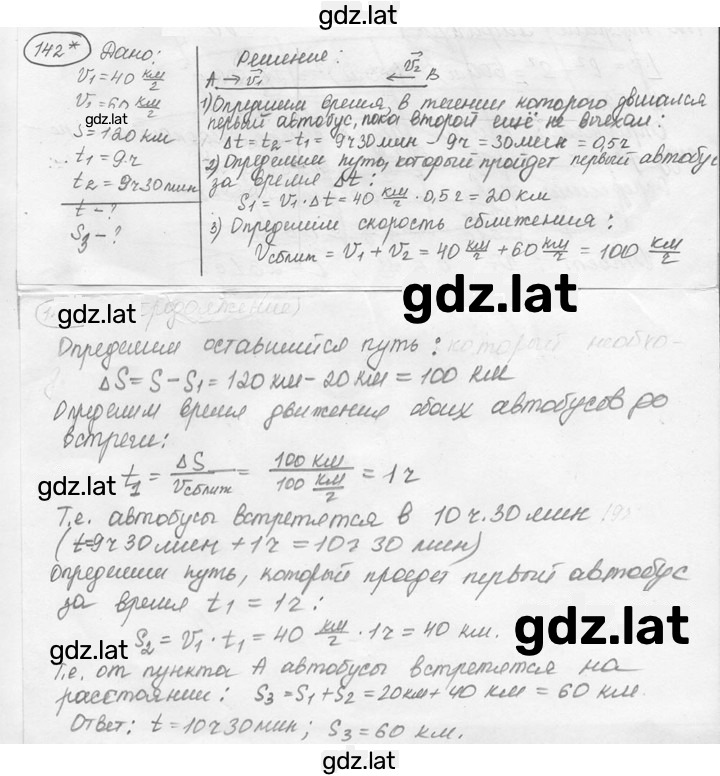 gdz.lat
142* Дано:
V₁=40 км/ч
V₂=60 км/ч
gdz.lat
S=120 км
t₁=9ч
t₂=9ч30мин
t-?
S₃-?
Решение:
A → V⃗₁ ← V⃗₂ B
1) Определим время, в течении которого двигался
первый автобус, пока второй ещё не выехал:
Δt=t₂-t₁=9ч30мин-9ч=30мин=0,5ч
2) Определим путь, который пройдет первый автобус
за время Δt:
S₁=V₁·Δt=40 км/ч·0,5ч=20 км
3) Определим скорость сближения:
Vсближ=V₁+V₂=40 км/ч+60 км/ч=100 км/ч
gdz.lat
gdz.lat
(продолжение)
Определим оставшийся путь:
ΔS=S-S₁=120км-20км=100 км
Определим время движения обоих автобусов до
встречи:
t₁=ΔS/Vсближ=100 км/100 км/ч=1ч
gdz.lat
Т.е. автобусы встретятся в 10ч.30мин
(t=9ч30мин+1ч=10ч30 мин)
Определим путь, который проедет первый автобус
за время t₁=1ч:
S₂=V₁·t₁=40 км/ч·1ч=40 км.
gdz.lat
gdz.lat
Т.е. от пункта А автобусы встретятся на
расстоянии: S₃=S₁+S₂=20км+40 км=60 км.
Ответ: t=10ч30мин; S₃=60 км.
gdz.lat